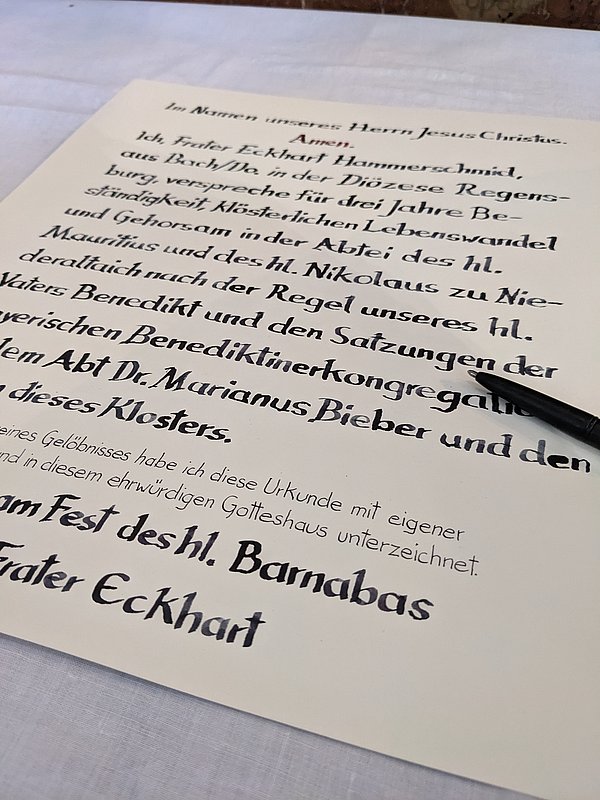 Im Namen unseres Herrn Jesus Christus.
Amen.
Ich, Frater Eckhart Hammerschmid,
aus Bach/Do. in der Diözese Regens-
burg, verspreche für drei Jahre Be-
ständigkeit, klösterlichen Lebenswandel
und Gehorsam in der Abtei des hl.
Mauritius und des hl. Nikolaus zu Nie-
deraltaich nach der Regel unseres hl.
Vaters Benedikt und den Satzungen der
ayerischen Benediktinerkongregati
dem Abt Dr. Marianus Bieber und den
n dieses Klosters.
eines Gelöbnisses habe ich diese Urkunde mit eigener
nd in diesem ehrwürdigen Gotteshaus unterzeichnet.
am Fest des hl. Barnabas
Frater Eckhart